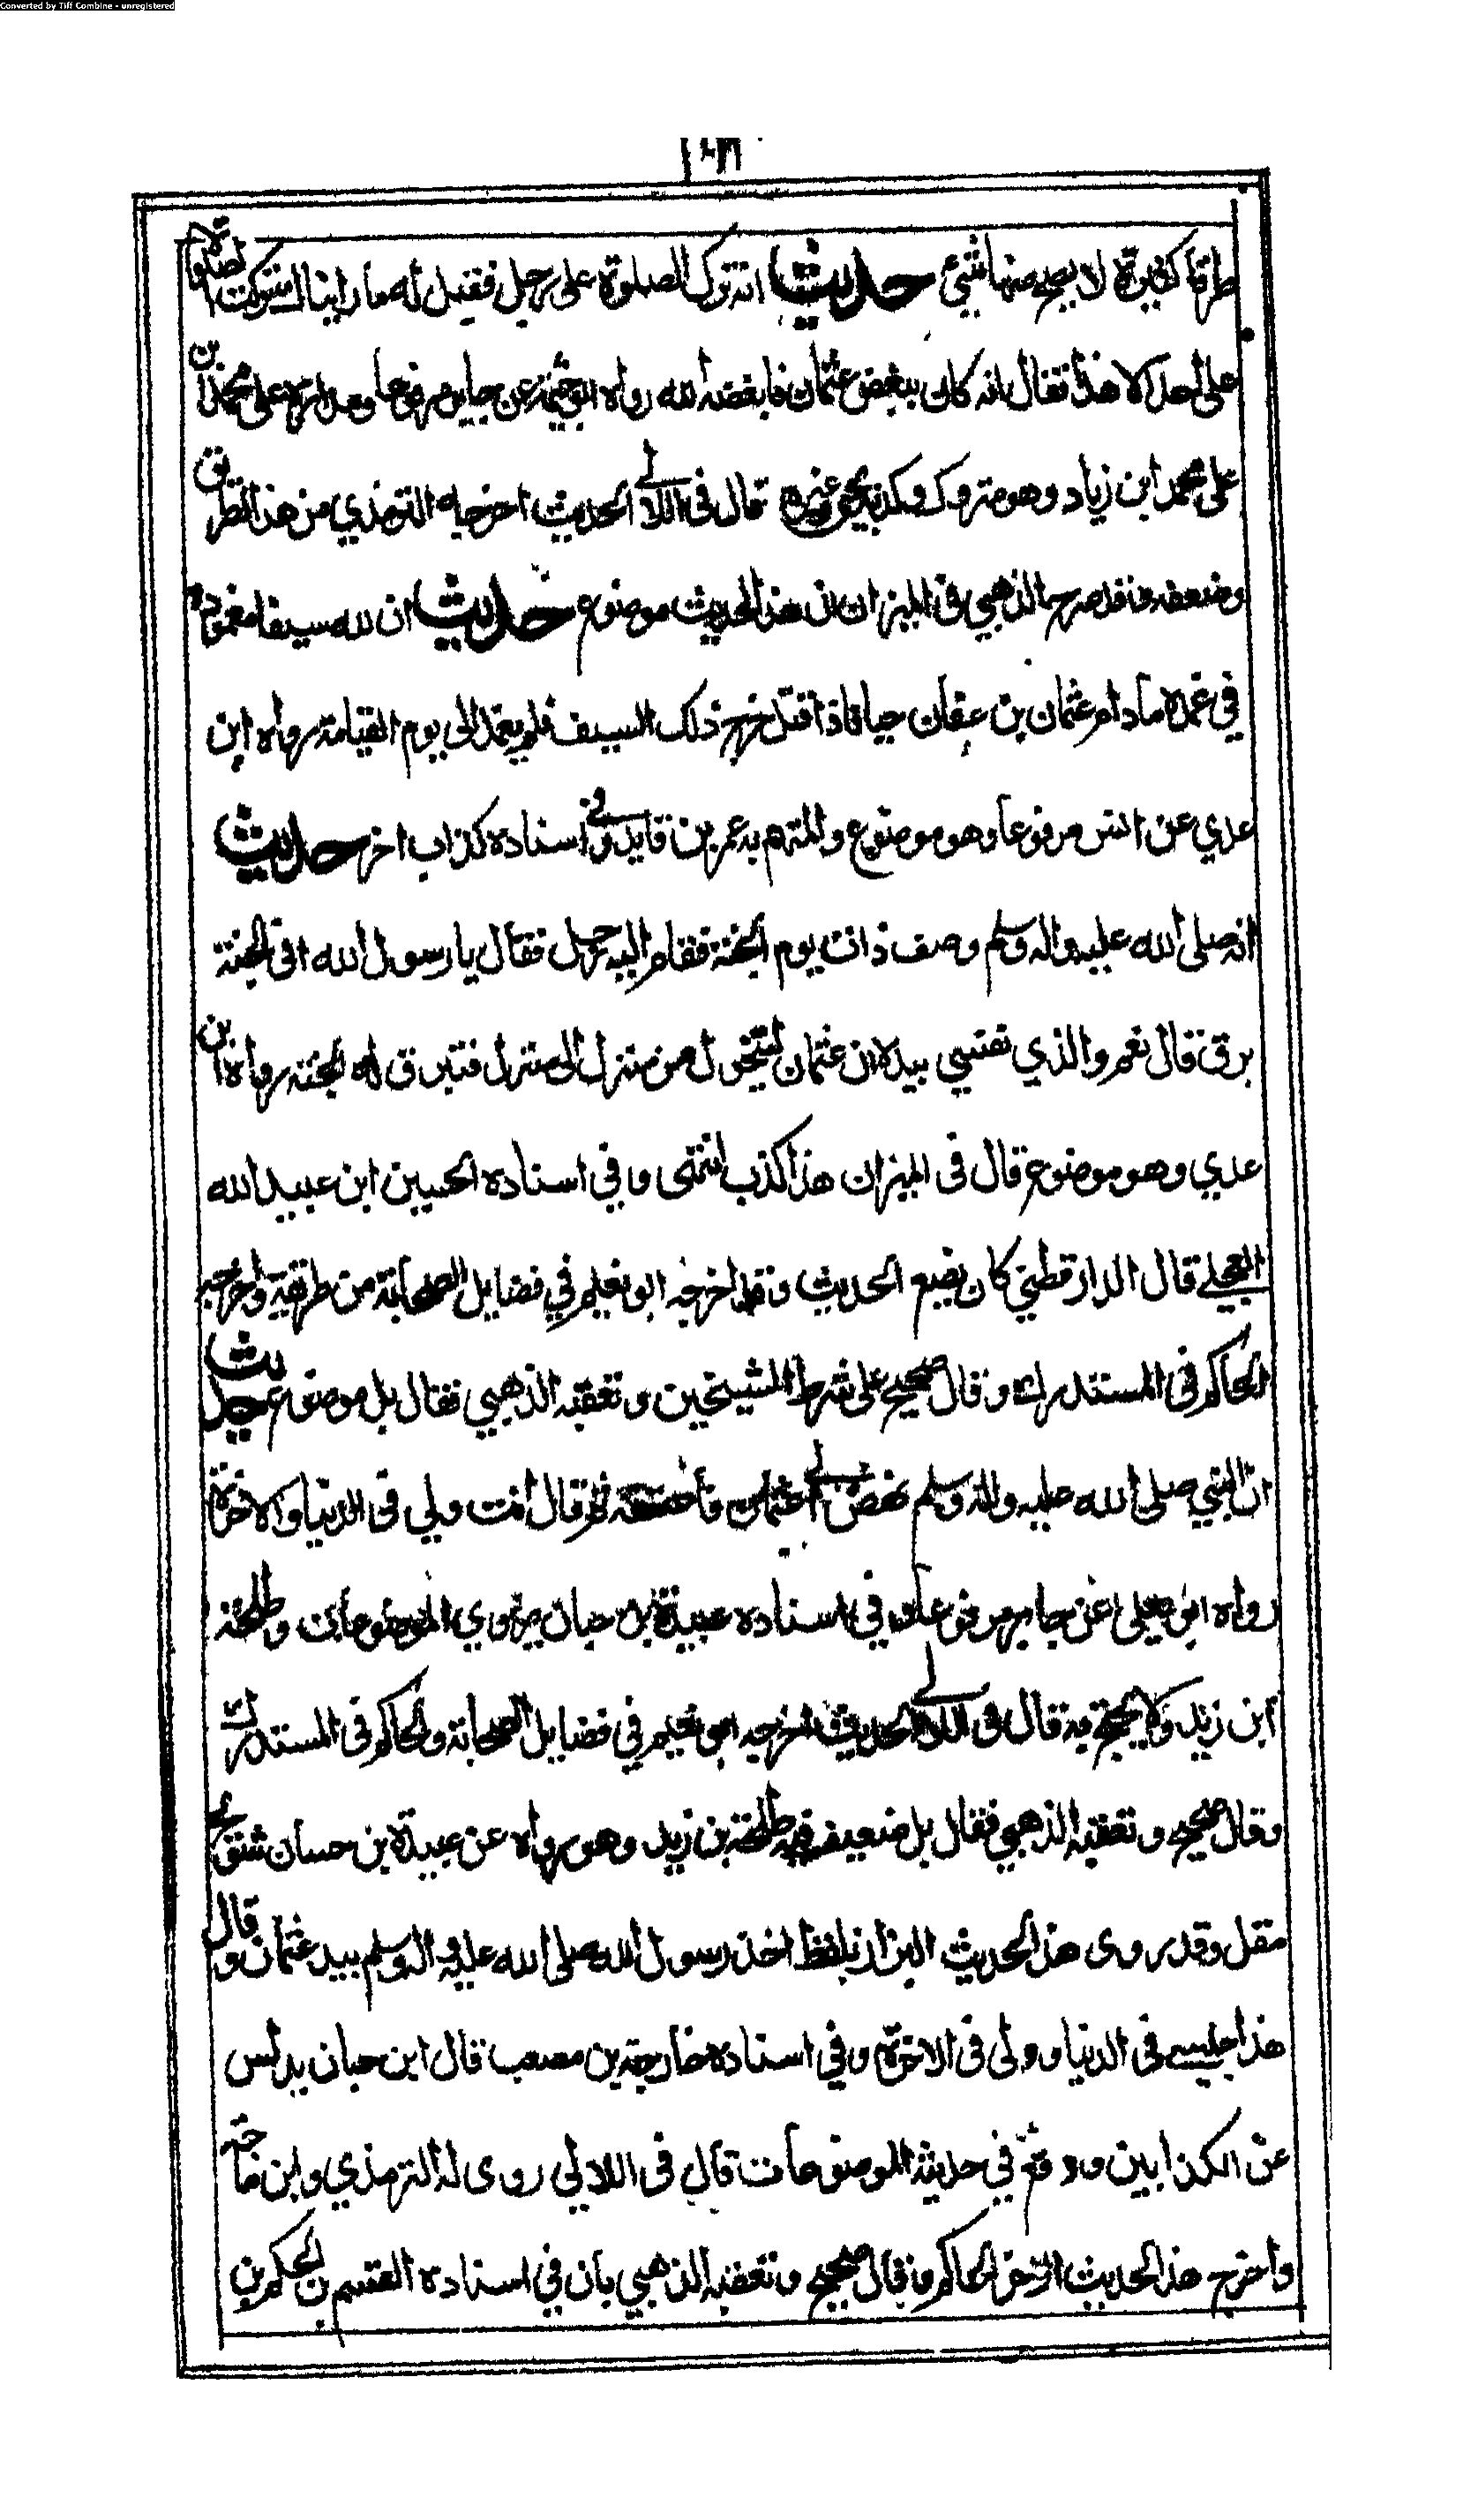 Converted by Tiff Combine - unregistered
طرقا كثيرة لا يصح منها شيء حديث انه ترك الصلوة على رجل فقيل له ما رايناك تركت الصلوة
على احد الا هذا فقال انه كان يبغض عثمان فابغضه الله رواه عن جابر مرفوعا ومداره على محمد بن
على محمد ابن زياد وهو متروك قال في اللالي الحديث اخرجه الترمذي من هذا الطريق
وضعفه وقد صرح الذهبي في الميزان ان هذا الحديث موضوع حديث ان لله سيفا مغمودا
في غمده ما دام عثمان بن عفان حيا فاذا قتل خرج ذلك السيف فلم يغمد الى يوم القيامة رواه ابن
عدي عن انس مرفوعا وهو موضوع والمتهم به عمر بن فايد وفي اسناده كذاب اخر حديث
انه صلى الله عليه واله وسلم وصف ذات يوم الجنة فقام اليه رجل فقال يا رسول الله افي الجنة
برق قال نعم والذي نفسي بيده ان عثمان ليتحول من منزل الى منزل فتبرق له الجنة رواه ابن
عدي وهو موضوع قال في الميزان هذا كذب انتهى وفي اسناده الحسين ابن عبيد الله
العجلي قال الدارقطني كان يضع الحديث وقد اخرجه ابو نعيم في فضايل الصحابة من طريقه واخرجه
الحاكم في المستدرك وقال صحيح على شرط الشيخين وتعقبه الذهبي فقال بل موضوع حديث
ان النبي صلى الله عليه واله وسلم نهض الى عثمان فاعتنقه ثم قال انت وليي في الدنيا والاخرة
رواه ابو يعلى عن جابر مرفوعا وفي اسناده عبيدة بن حبان يروي الموضوعات وطلحة
ابن زيد ولا يحتج به قال في اللالي الحديث اخرجه ابو نعيم في فضايل الصحابة والحاكم في المستدرك
وقال صحيح وتعقبه الذهبي فقال بل ضعيف فيه طلحة بن زيد وهو رواه عن عبيدة بن حسان شيخ
مقل وقد روى هذا الحديث البزار بلفظ اخذ رسول الله صلى الله عليه واله وسلم بيد عثمان وقال
هذا جليسي في الدنيا وولي في الاخرة وفي اسناده خارجة بن مصعب قال ابن حبان يدلس
عن الكذابين ووقع في حديثه الموضوعات قال في اللالي روى له الترمذي وابن ماجه
واخرج هذا الحديث الحاكم وقال صحيح وتعقبه الذهبي بان في اسناده القسم بن الحكم بن